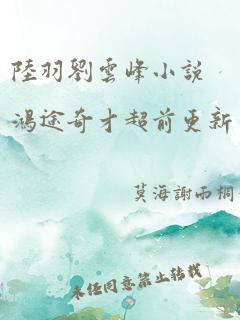 陸羽劉雲峰小說
鴻途奇才超前更新
莫海謝雨桐
未经同意禁止转载